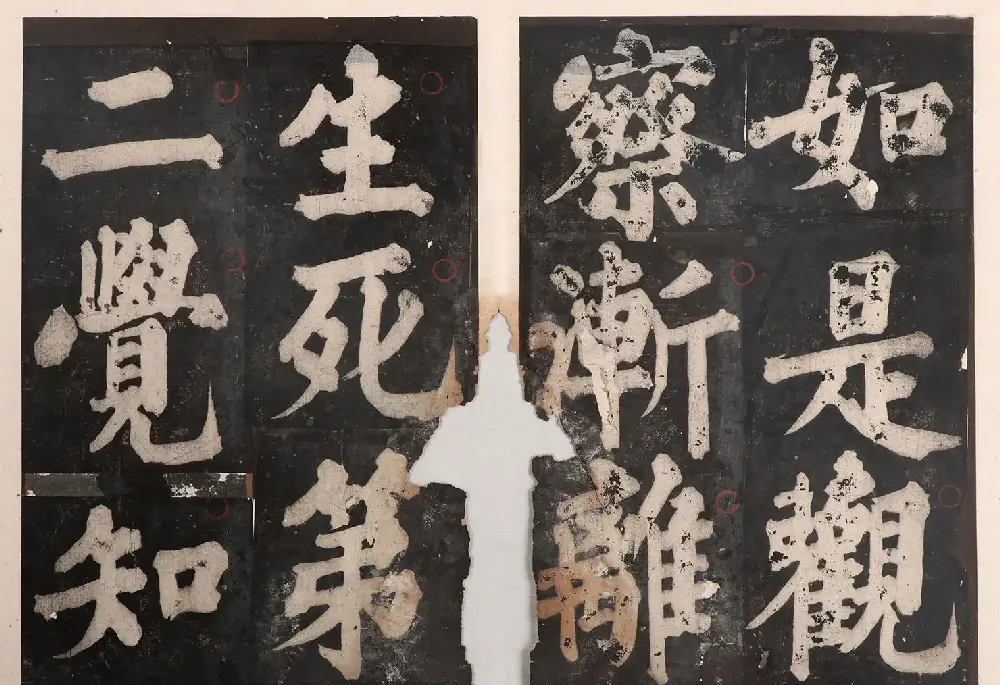 如是觀
察漸離
生死第
二覺知